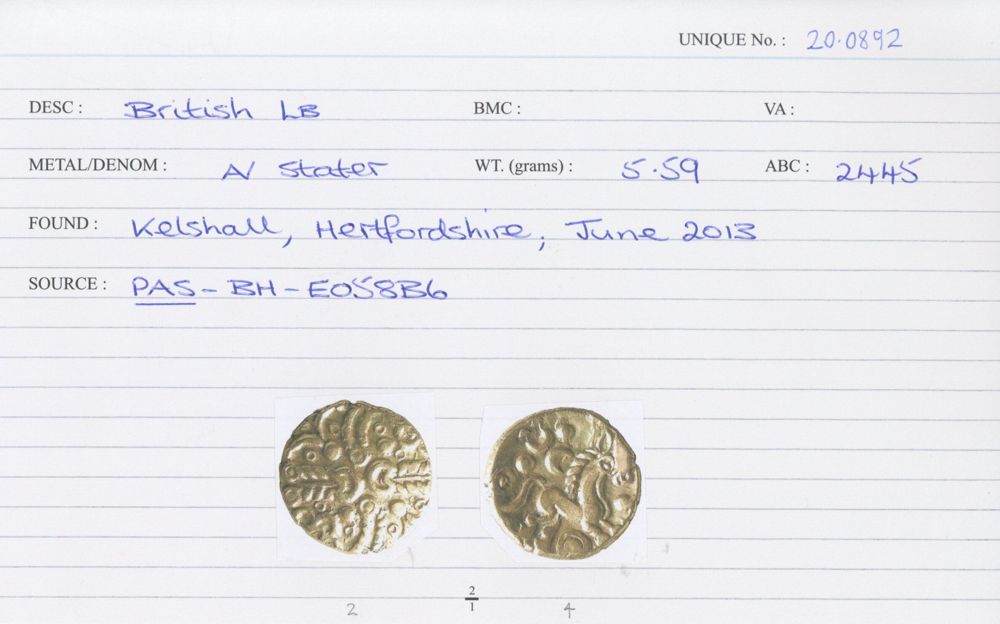 UNIQUE No. : 20.0892
DESC : British LB BMC : VA :
METAL/DENOM : AV Stater WT. (grams) : 5.59 ABC : 2445
FOUND : Kelshall, Hertfordshire, June 2013
SOURCE : PAS - BH - E058B6
2/1
2 4